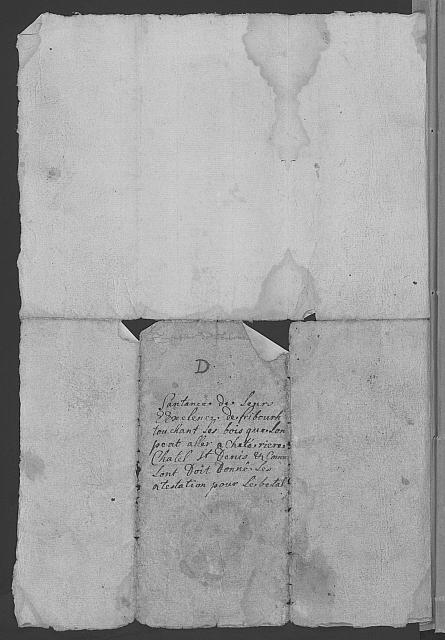 D
Santance de Leurs
Exelence de fribourk
touchant les bois que Lon
peut aller a Chate riere
Chatel St Denis & Comm
Lont Doit Donné Les
atestation pour Le betal